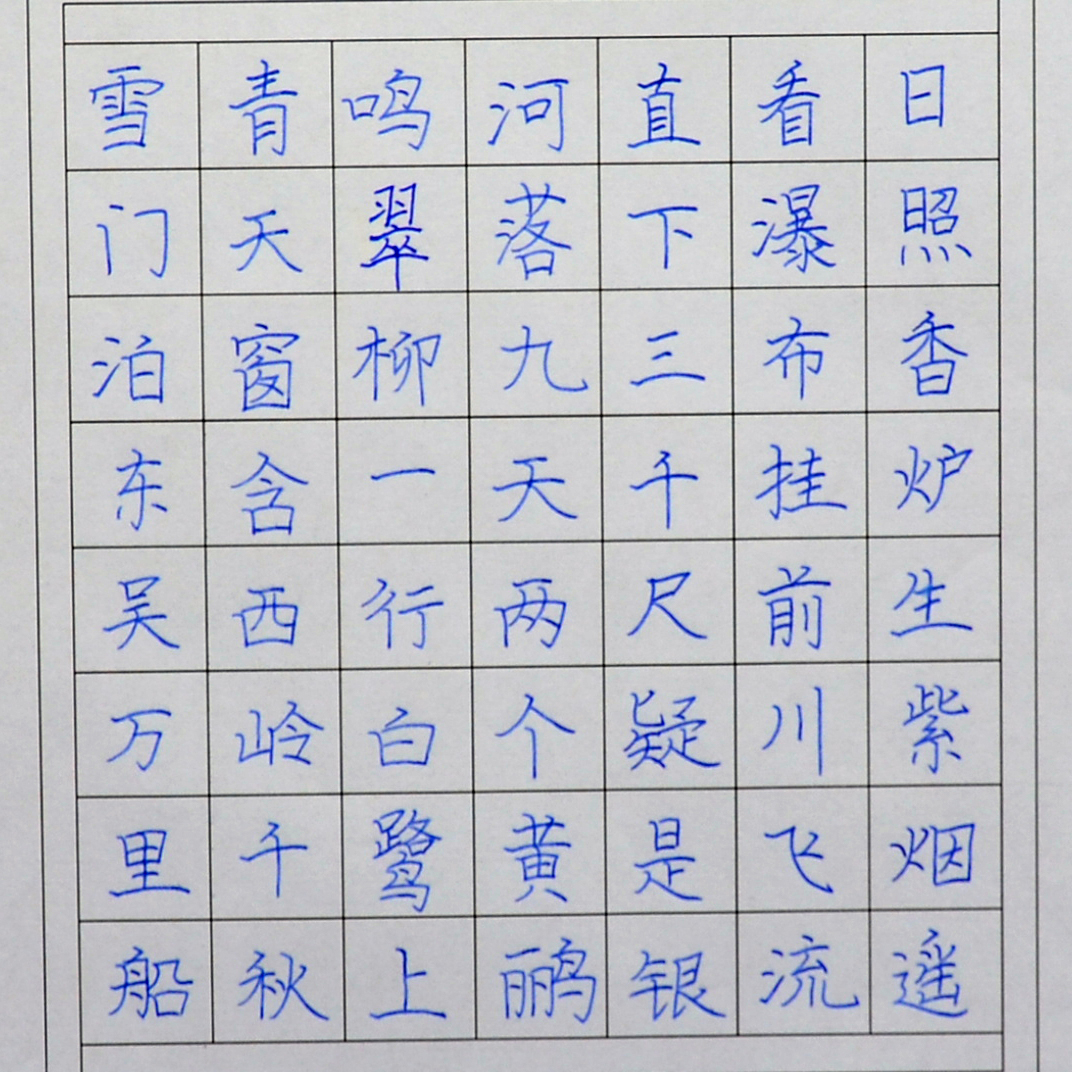 日照香炉生紫烟遥
看瀑布挂前川飞流
直下三千尺疑是银
河落九天两个黄鹂
鸣翠柳一行白鹭上
青天窗含西岭千秋
雪门泊东吴万里船